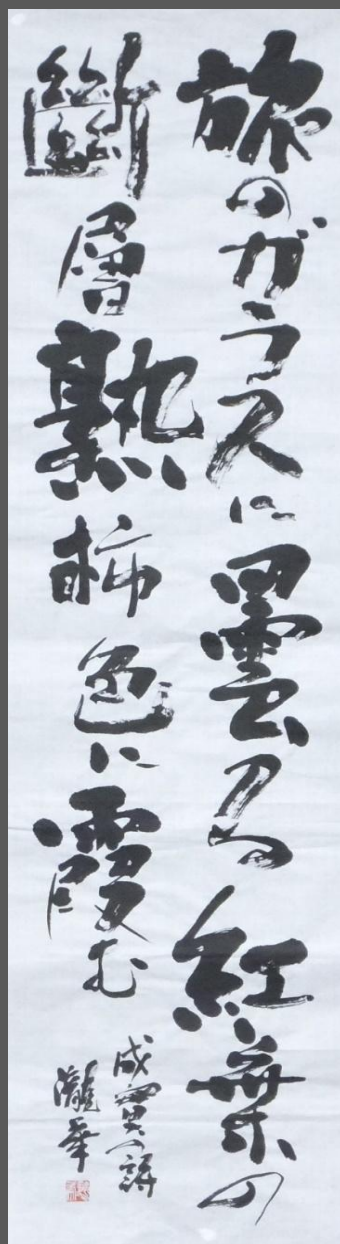 旅のガラスに曇る紅葉の
斷層熟柿色に霞む
成實の詩
瀧華